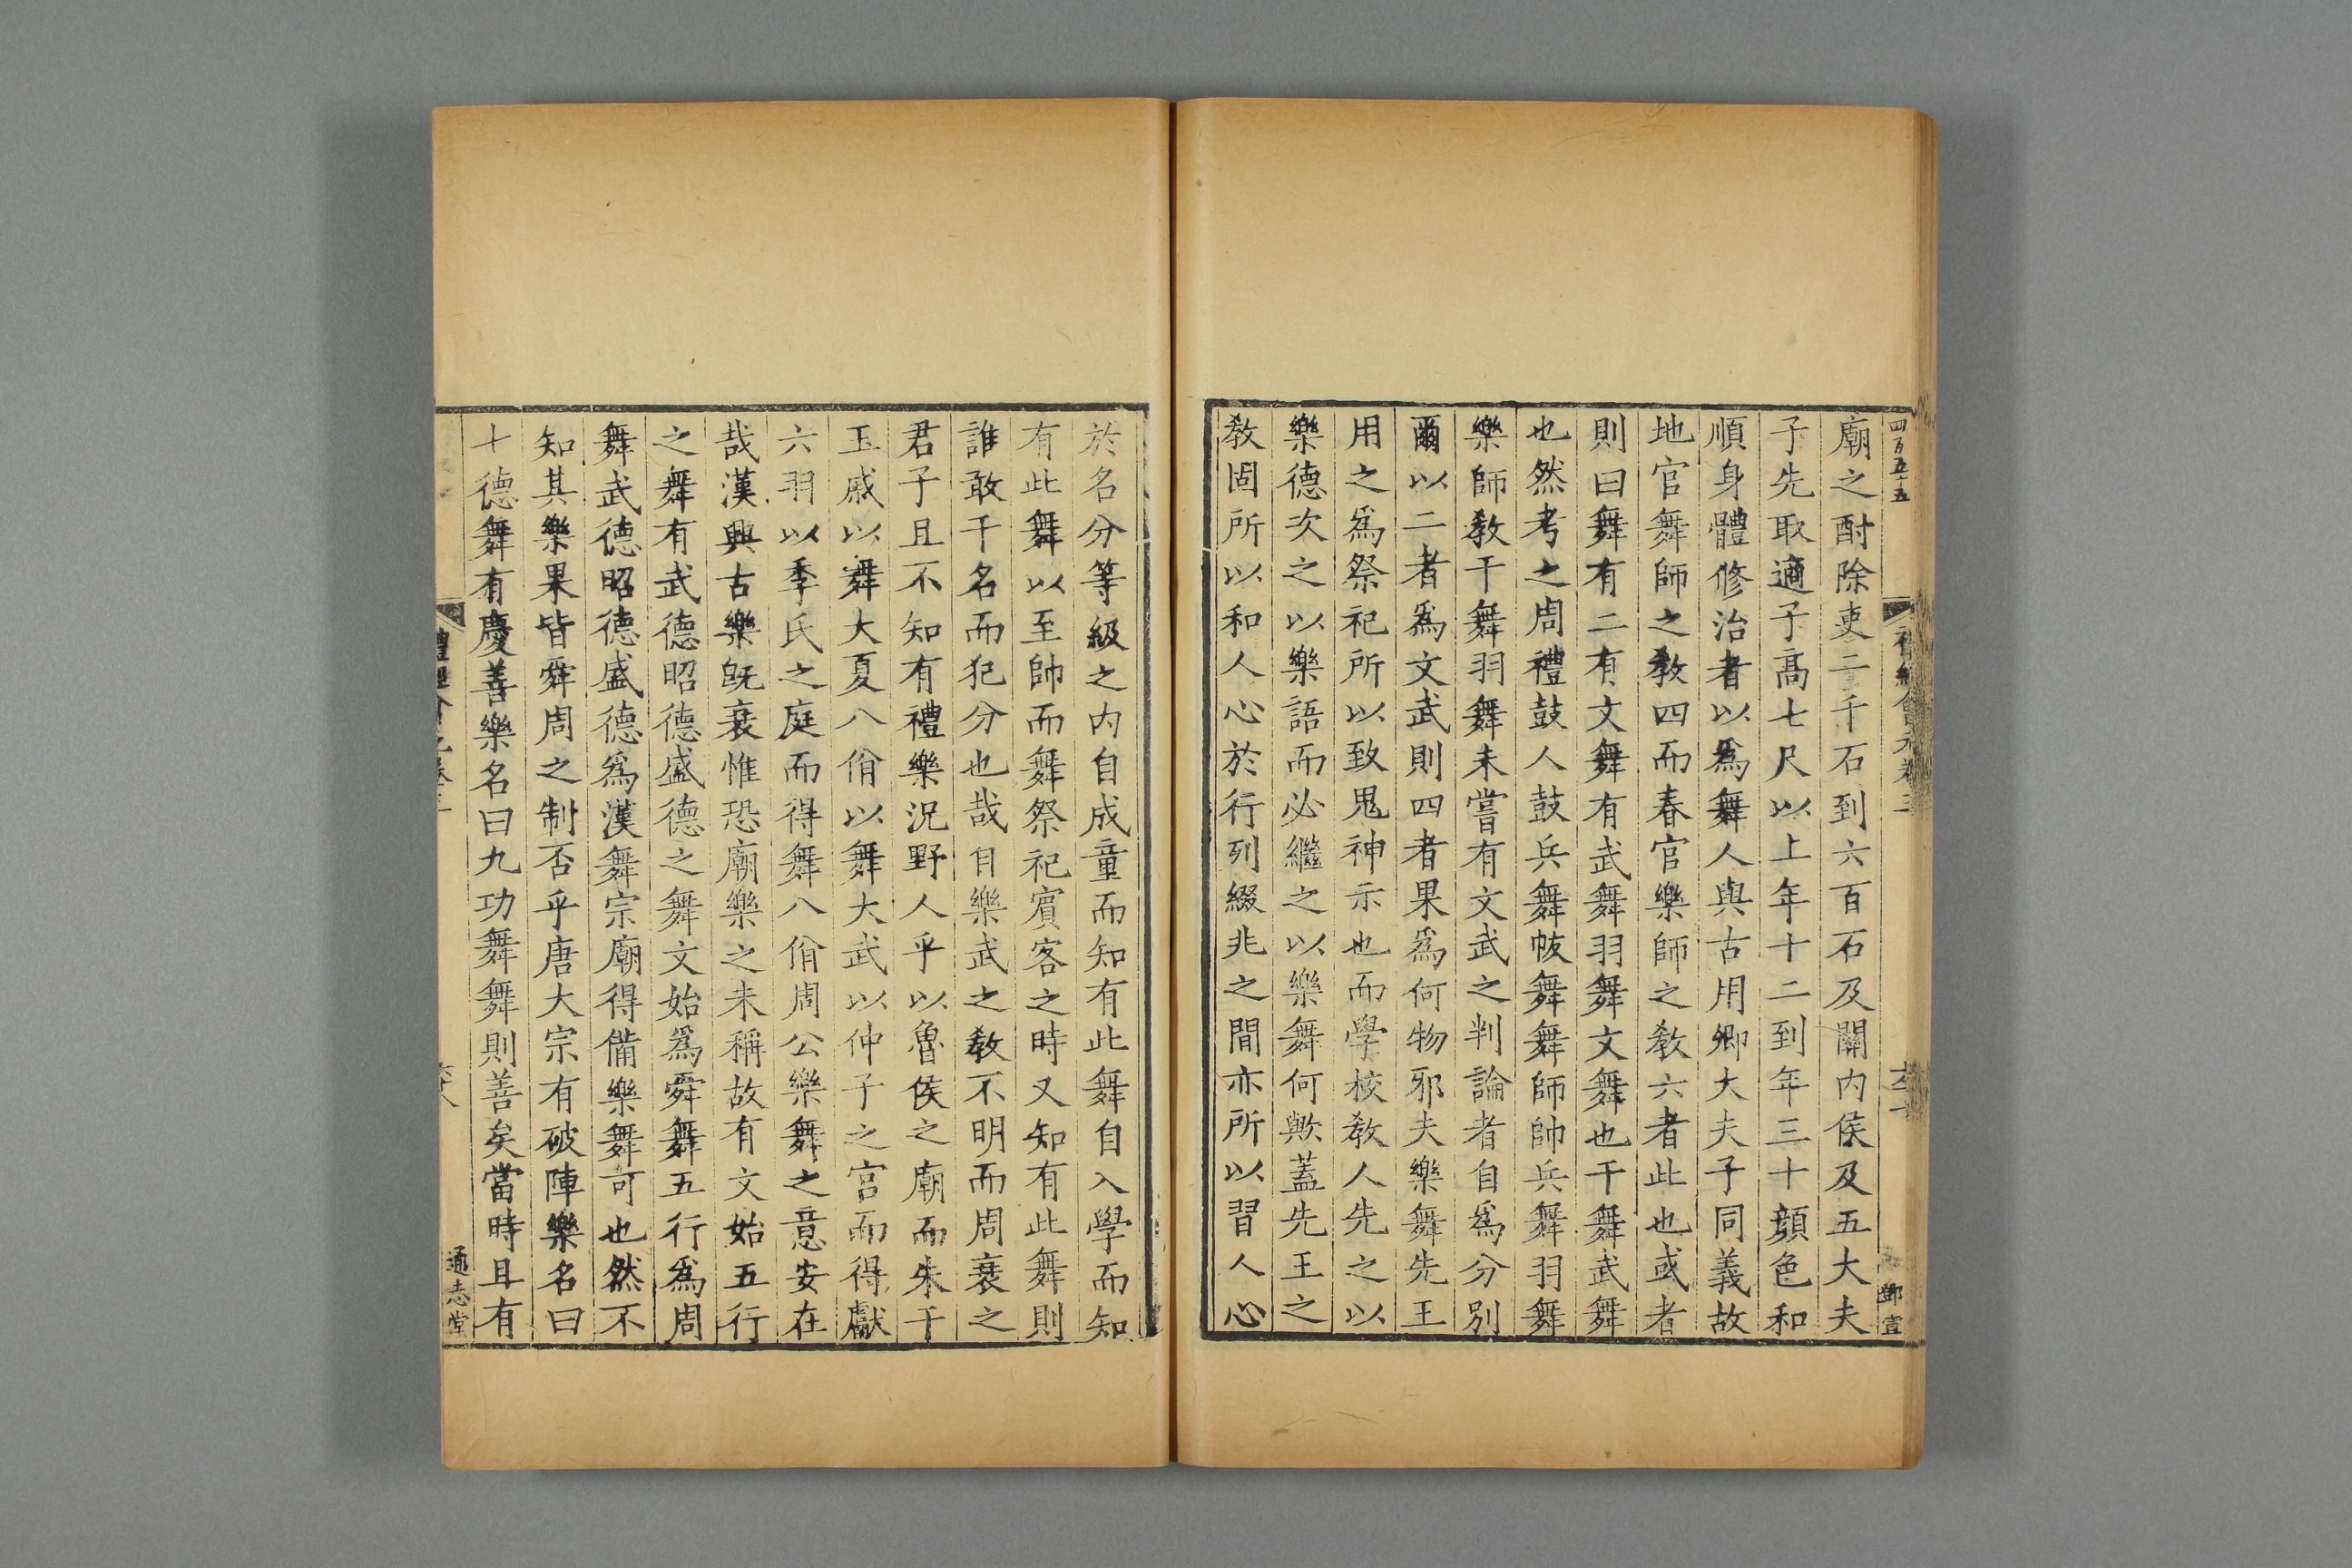 四百五十五
廟之酎除吏二千石到六百石及關内侯及五大夫
子先取適子高七尺以上年十二到年三十顔色和
順身體修治者以爲舞人與古用卿大夫子同義故
地官舞師之教四而春官樂師之教六者此也或者
則曰舞有二有文舞有武舞羽舞文舞也干舞武舞
也然考之周禮鼓人鼓兵舞帗舞舞師帥兵舞羽舞
樂師教干舞羽舞未嘗有文武之判論者自爲分別
爾以二者爲文武則四者果爲何物邪夫樂舞先王
用之爲祭祀所以致鬼神示也而學校教人先之以
樂德次之以樂語而必繼之以樂舞何歟蓋先王之
教固所以和人心於行列綴兆之間亦所以習人心
於名分等級之内自成童而知有此舞自入學而知
有此舞以至帥而舞祭祀賓客之時又知有此舞則
誰敢干名而犯分也哉自樂武之教不明而周衰之
君子且不知有禮樂況野人乎以魯侯之廟而朱干
玉戚以舞大夏八佾以舞大武以仲子之宮而得獻
六羽以季氏之庭而得舞八佾周公樂舞之意安在
哉漢興古樂旣衰惟恐廟樂之未稱故有文始五行
之舞有武德昭德盛德之舞文始爲舜舞五行爲周
舞武德昭德盛德爲漢舞宗廟得備樂舞可也然不
知其樂果皆舜周之制否乎唐大宗有破陣樂名曰
十德舞有慶善樂名曰九功舞舞則善矣當時且有
通志堂